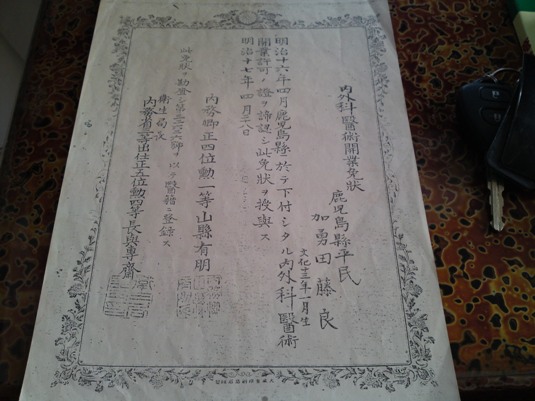 内外科醫術開業免状
鹿児島縣平民
加勇田藤良
文化十三年一月生
明治十六年四月鹿児島縣ニ於テ下付シタル内外科醫術
開業許可ノ證ヲ諦認シ此免状ヲ授與ス
明治十七年四月三十八日
内務卿正四位勲一等山縣有朋
此免状ヲ勘査シ
号ヲ以テ醫籍ニ登録ス
衛生局長
内務省三等出仕正五位勲四等長與專齋